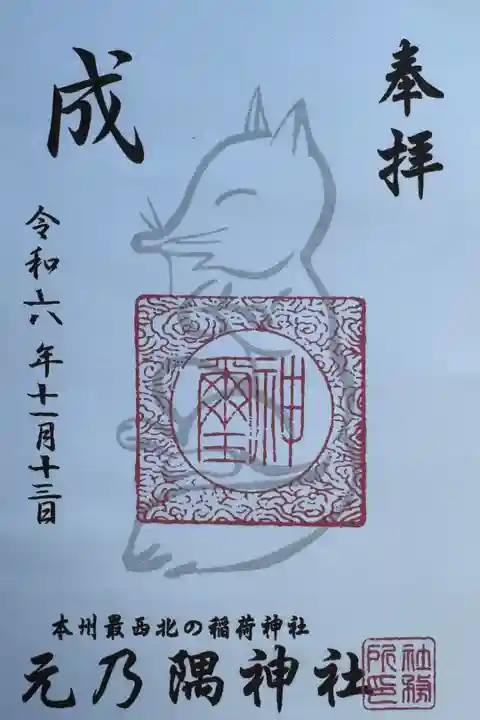 奉拝
成
令和六年十一月十三日
神璽
本州最西北の稲荷神社
元乃隅神社
社務所印